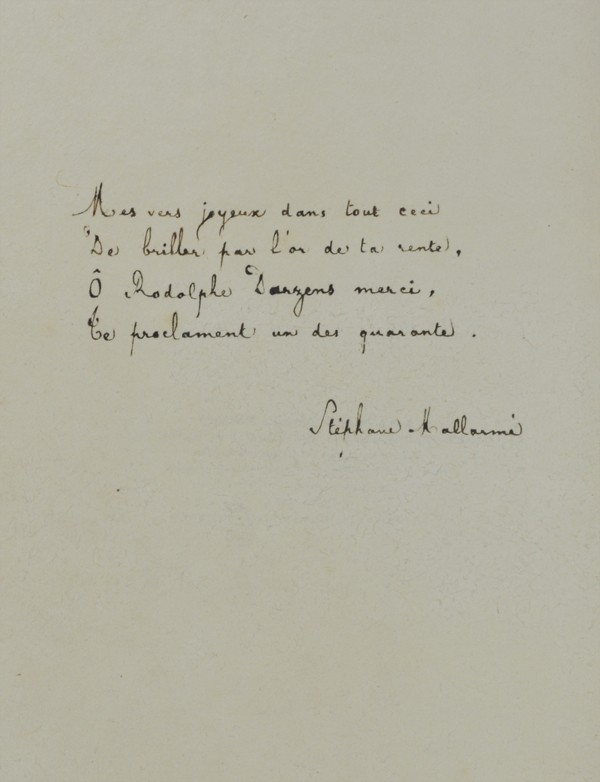 Mes vers joyeux dans tout ceci
De briller par l'or de ta rente,
Ô Rodolphe Darzens merci,
Te proclament un des quarante.
Stéphane Mallarmé